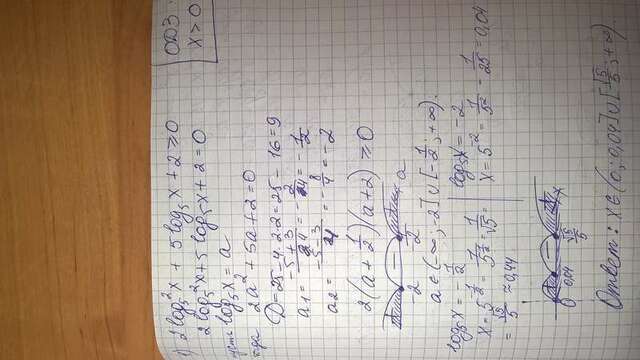 1) 2log₅²x + 5log₅x + 2 ≥ 0
ОДЗ:
x > 0
2log₅²x + 5log₅x + 2 = 0
пусть log₅x = a
тогда 2a² + 5a + 2 = 0
D = 25 - 4·2·2 = 25 - 16 = 9
a₁ = (-5+3)/4 = -2/4 = -1/2
a₂ = (-5-3)/4 = -8/4 = -2
2(a + 1/2)(a + 2) ≥ 0
+ − +
-2 -1/2 a
a ∈ (-∞; -2] ∪ [-1/2; +∞).
log₅x = -1/2
x = 5^(-1/2) = 1/5^(1/2) = 1/√5 =
= √5/5 ≈ 0,44
log₅x = -2
x = 5⁻² = 1/5² - 1/25 = 0,04
+ − +
0 0,04 √5/5 x
Ответ: x ∈ (0; 0,04] ∪ [√5/5; +∞).